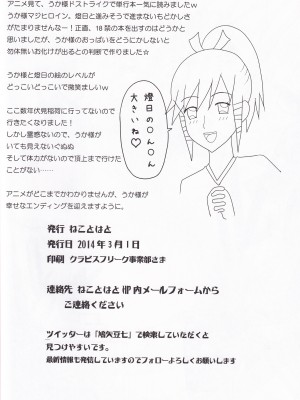 アニメ見て、うか様ドストライクで単行本一気に読みましたw
うか様マジヒロイン。燈日と進みそうで進まないもどかしさ
がたまりませんなー！正直、18禁の本を出すのはどうかと
思いましたが、うか様のおっぱいをどうにかしないと
勿体無いおばけが出るとの判断で作りました☆
うか様と燈日の絵のレベルが
どっこいどっこいで微笑ましいw
ここ数年伏見稲荷に行ってないので
行きたくなりました！
しかし霊感ないので、うか様が
いても見えないぐぬぬ
そして体力がないので頂上まで行けた
ことがない……
アニメがどこまでかわりませんが、うか様が
幸せなエンディングを迎えますように。
燈日の○ん○ん
大きいね♡
発行 ねことはと
発行日 2014年3月1日
印刷 クラビスフリーク事業部さま
連絡先 ねことはとHP内メールフォームから
ご連絡ください
ツイッターは「鳩矢豆七」で検索していただくと
見つけやすいです。
最新情報も発信していますのでフォローよろしくお願いします